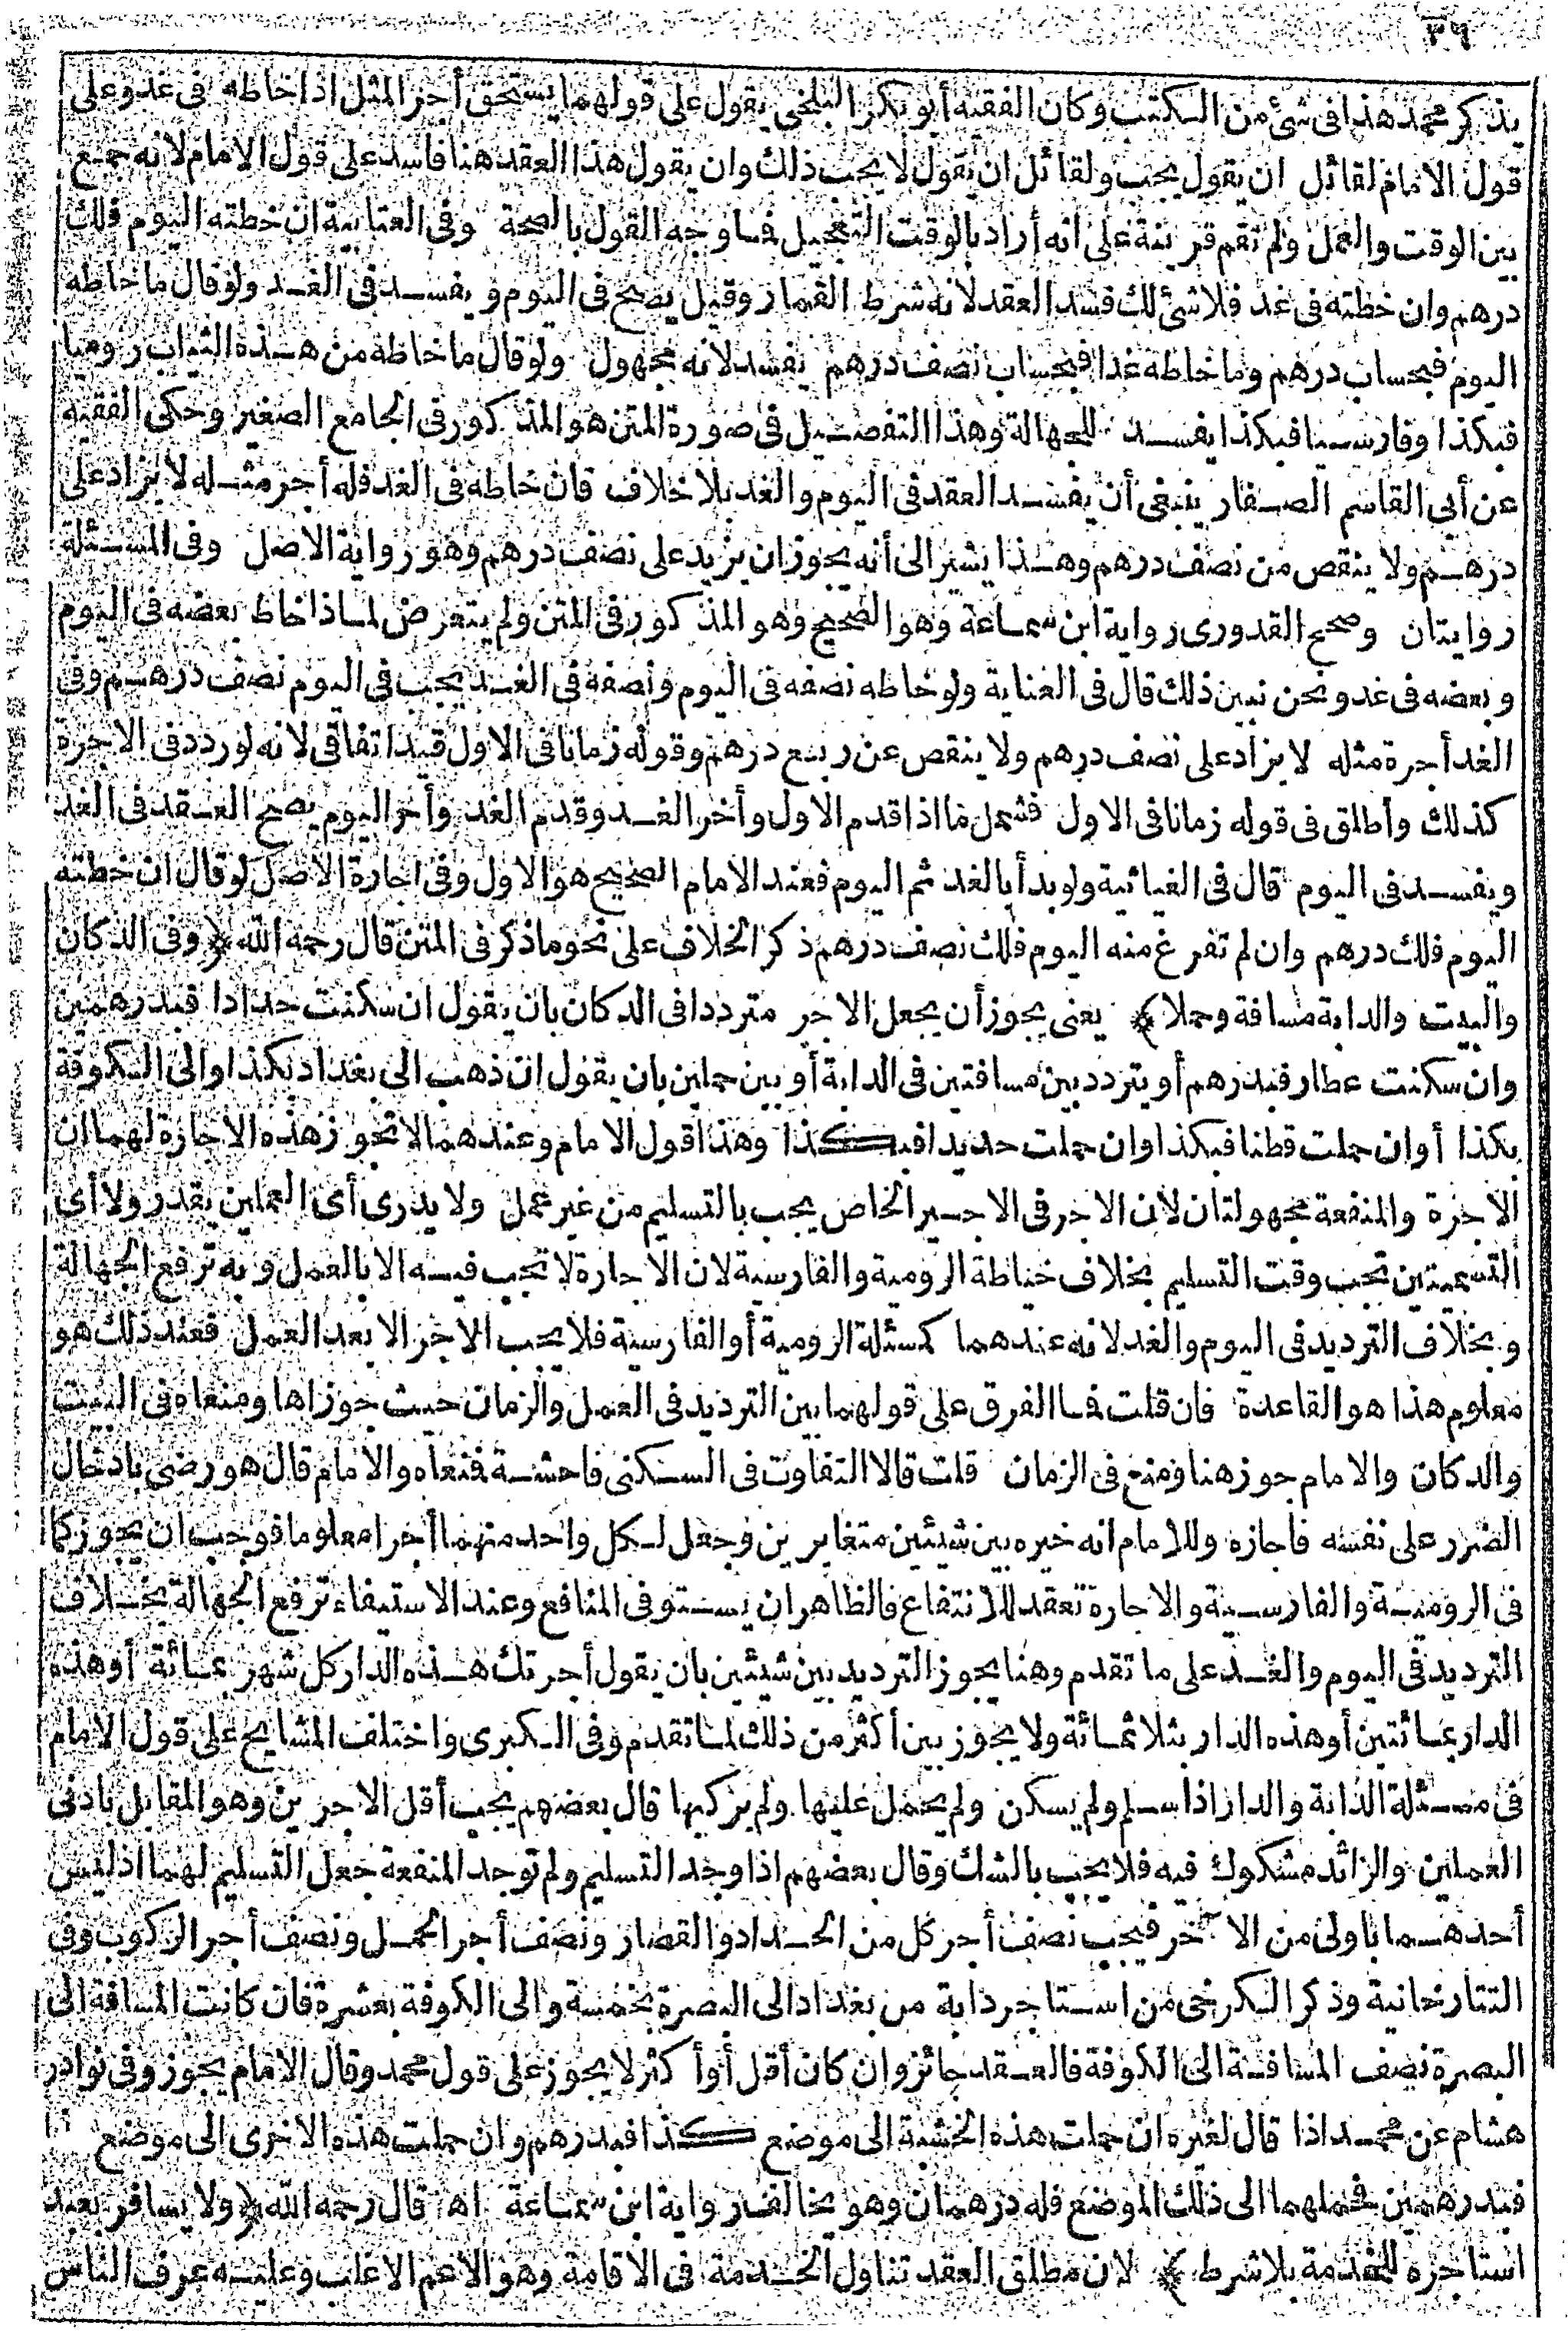 ٣٦
يذكر محمد هذا فى شئ من الكتب وكان الفقيه أبو بكر البلخى يقول على قولهما يستحق أجر المثل اذا خاطه فى غد وعلى
قول الامام لقائل ان يقول يجب ولقائل ان يقول لا يجب ذلك وان يقول هذا العقد هنا فاسد على قول الامام لانه جمع
بين الوقت والعمل ولم تقم قرينة على انه أراد بالوقت التعجيل فما وجه القول بالصحة وفى العتابية ان خطته اليوم فلك
درهم وان خطته فى غد فلا شئ لك فسد العقد لانه شرط القمار وقيل يصح فى اليوم ويفسد فى الغد ولو قال ما خاطه
اليوم فبحساب درهم وما خاطه غدا فبحساب نصف درهم يفسد لانه مجهول ولو قال ما خاطه من هذه الثياب روميا
فبكذا وفارسيا فبكذا يفسد للجهالة وهذا التفصيل فى صورة المتن هو المذكور فى الجامع الصغير وحكى الفقيه
عن أبى القاسم الصفار ينبغى أن يفسد العقد فى اليوم والغد بلا خلاف فان خاطه فى الغد فله أجر مثله لا يزاد على
درهم ولا ينقص من نصف درهم وهذا يشير الى أنه يجوز ان يزيد على نصف درهم وهو رواية الاصل وفى المسئلة
روايتان وصحح القدورى رواية ابن سماعة وهو الصحيح وهو المذكور فى المتن ولم يتعرض لما اذا خاط بعضه فى اليوم
وبعضه فى غد ونحن نبين ذلك قال فى العناية ولو خاطه نصفه فى اليوم ونصفه فى الغد يجب فى اليوم نصف درهم وفى
الغد أجرة مثله لا يزاد على نصف درهم ولا ينقص عن ربع درهم وقوله زمانا فى الاول قيد اتفاقى لانه لو ردد فى الاجرة
كذلك وأطلق فى قوله زمانا فى الاول فشمل ما اذا قدم الاول وأخر الغد وقدم الغد وأخر اليوم يصح العقد فى الغد
ويفسد فى اليوم قال فى الغياثية ولو بدأ بالغد ثم اليوم فعند الامام الصحيح هو الاول وفى اجارة الاصل لو قال ان خطته
اليوم فلك درهم وان لم تفرغ منه اليوم فلك نصف درهم ذكر الخلاف على نحو ما ذكر فى المتن قال رحمه الله ﴿وفى الدكان
والبيت والدابة مسافة وحملا﴾ يعنى يجوز أن يجعل الاجر مترددا فى الدكان بان يقول ان سكنت حدادا فبدرهمين
وان سكنت عطار فبدرهم أو يتردد بين مسافتين فى الدابة أو بين حملين بان يقول ان ذهب الى بغداد بكذا والى الكوفة
بكذا أو ان حملت قطنا فبكذا وان حملت حديدا فبكذا وهذا قول الامام وعندهما لا تجوز هذه الاجارة لهما ان
الاجرة والمنفعة مجهولتان لان الاجر فى الاجير الخاص يجب بالتسليم من غير عمل ولا يدرى أى العملين يقدر ولا أى
التسميتين تجب وقت التسليم بخلاف خياطة الرومية والفارسية لان الاجارة لا تجب فيه الا بالعمل وبه ترفع الجهالة
وبخلاف الترديد فى اليوم والغد لانه عندهما كمسئلة الرومية أو الفارسية فلا يجب الاجر الا بعد العمل فعند ذلك هو
معلوم هذا هو القاعدة فان قلت فما الفرق على قولهما بين الترديد فى العمل والزمان حيث جوزاها ومنعاه فى البيت
والدكان والامام جوز هنا ومنع فى الزمان قلت قالا التفاوت فى السكنى فاحشة فمنعاه والامام قال هو رضى بادخال
الضرر على نفسه فاجازه وللامام انه خيره بين شيئين متغايرين وجعل لكل واحد منهما أجرا معلوما فوجب ان يجوز كما
فى الرومية والفارسية والاجارة تعقد للانتفاع فالظاهر ان يستوفى المنافع وعند الاستيفاء ترفع الجهالة بخلاف
الترديد فى اليوم والغد على ما تقدم وهنا يجوز الترديد بين شيئين بان يقول أجرتك هذه الدار كل شهر بمائة أو هذه
الدار بمائتين أو هذه الدار بثلاثمائة ولا يجوز بين أكثر من ذلك لما تقدم وفى الكبرى واختلف المشايخ على قول الامام
فى مسئلة الدابة والدار اذا سلم ولم يسكن ولم يحمل عليها ولم يركبها قال بعضهم يجب أقل الاجرين وهو المقابل بادنى
العملين والزائد مشكوك فيه فلا يجب بالشك وقال بعضهم اذا وجد التسليم ولم توجد المنفعة جعل التسليم لهما اذ ليس
أحدهما باولى من الآخر فيجب نصف أجر كل من الحداد والقصار ونصف أجر الحمل ونصف أجر الركوب وفى
التتارخانية وذكر الكرخى من استاجر دابة من بغداد الى البصرة بخمسة والى الكوفة بعشرة فان كانت المسافة الى
البصرة نصف المسافة الى الكوفة فالعقد جائز وان كان أقل أو أكثر لا يجوز على قول محمد وقال الامام يجوز وفى نوادر
هشام عن محمد اذا قال لغيره ان حملت هذه الخشبة الى موضع كذا فبدرهم وان حملت هذه الاخرى الى موضع
فبدرهمين فحملهما الى ذلك الموضع فله درهمان وهو يخالف رواية ابن سماعة اه قال رحمه الله ﴿ولا يسافر بعبد
استاجره للخدمة بلا شرط﴾ لان مطلق العقد تناول الخدمة فى الاقامة وهو الاعم الاغلب وعليه عرف الناس